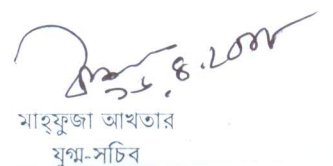 ১৬.৪.২০১৮
মাহ্‌ফুজা আখতার
যুগ্ম-সচিব